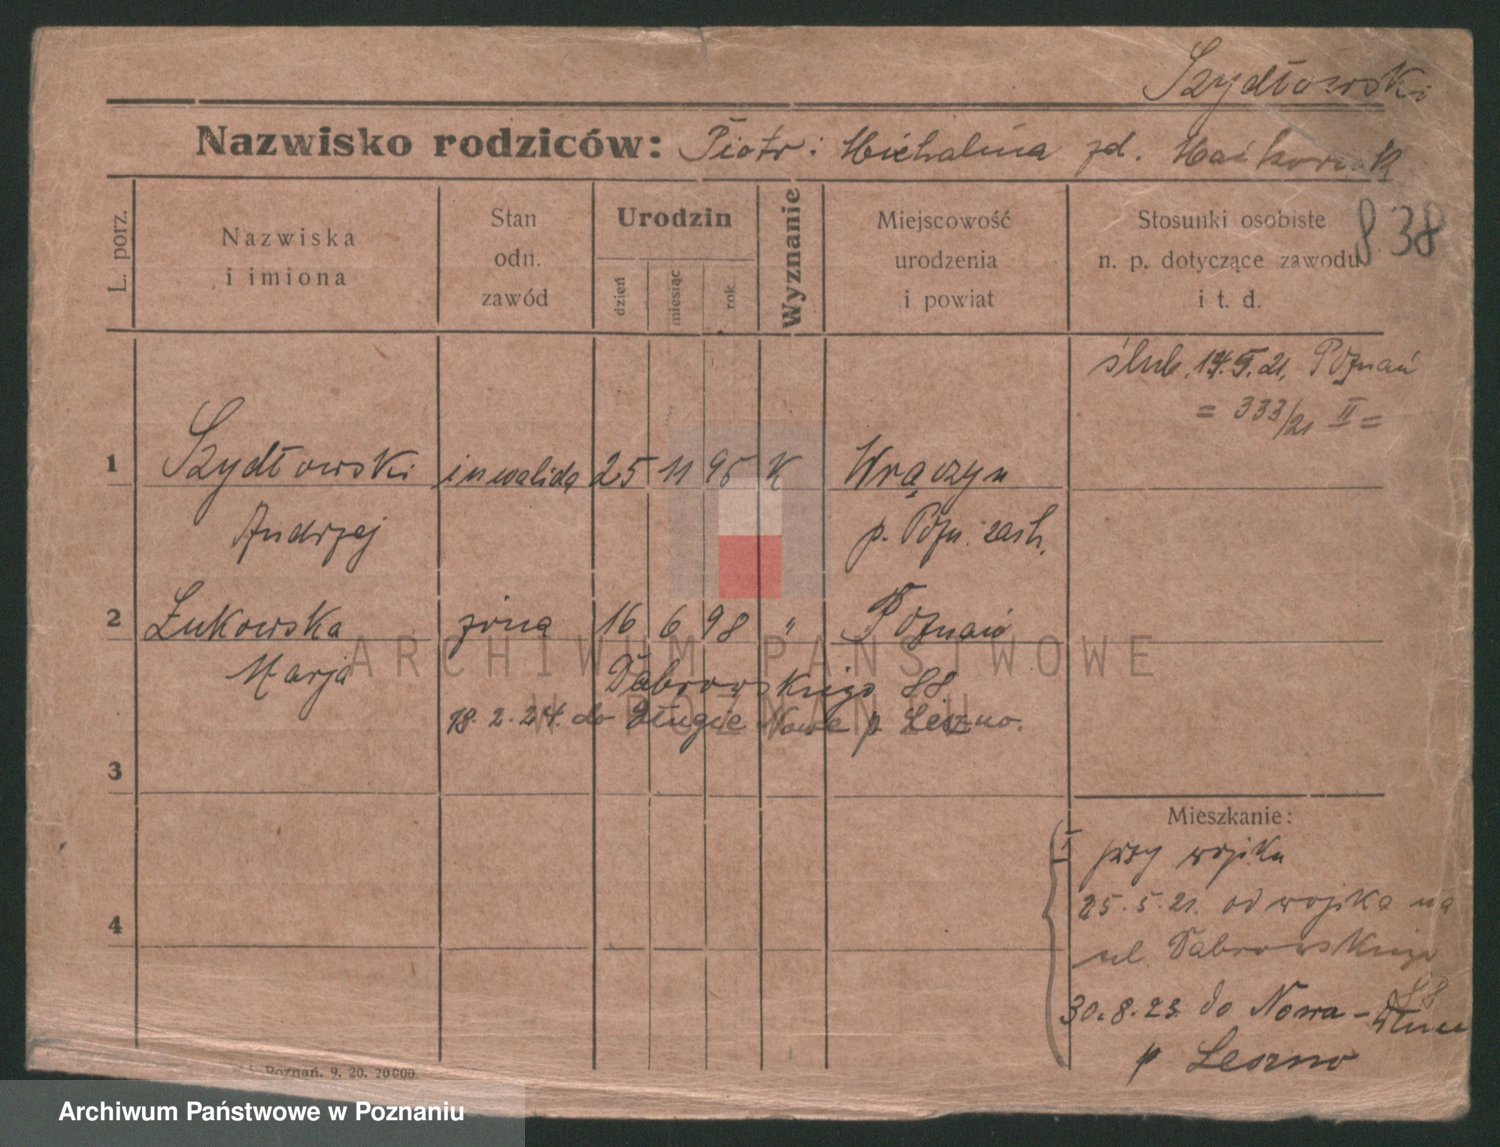 Szydłowski
Nazwisko rodziców: Piotr i Michalina zd. Maćkowiak
838
L. porz.
Nazwiska
i imiona
Stan
odn.
zawód
Urodzin
dzień
miesiąc
rok
Wyznanie
Miejscowość
urodzenia
i powiat
Stosunki osobiste
n. p. dotyczące zawodu
i t. d.
ślub. 14.5.21. Poznań
= 333/21 II =
1 Szydłowski inwalida 25 11 95 K Wrączyn
Andrzej p. Pozn. zach.
2 Żukowska żona 16 6 98 " Poznań
Marja Dąbrowskiego 88
18.2.24. do Długie Nowe p Leszno.
3
Mieszkanie:
I przy wojsku
25.5.21. od wojska na
ul. Dąbrowskiego
88
30.8.23. do Nowa-
p Leszno
4
Poznań. 9. 20. 20000.
ARCHIWUM PAŃSTWOWE
W POZNANIU
Archiwum Państwowe w Poznaniu